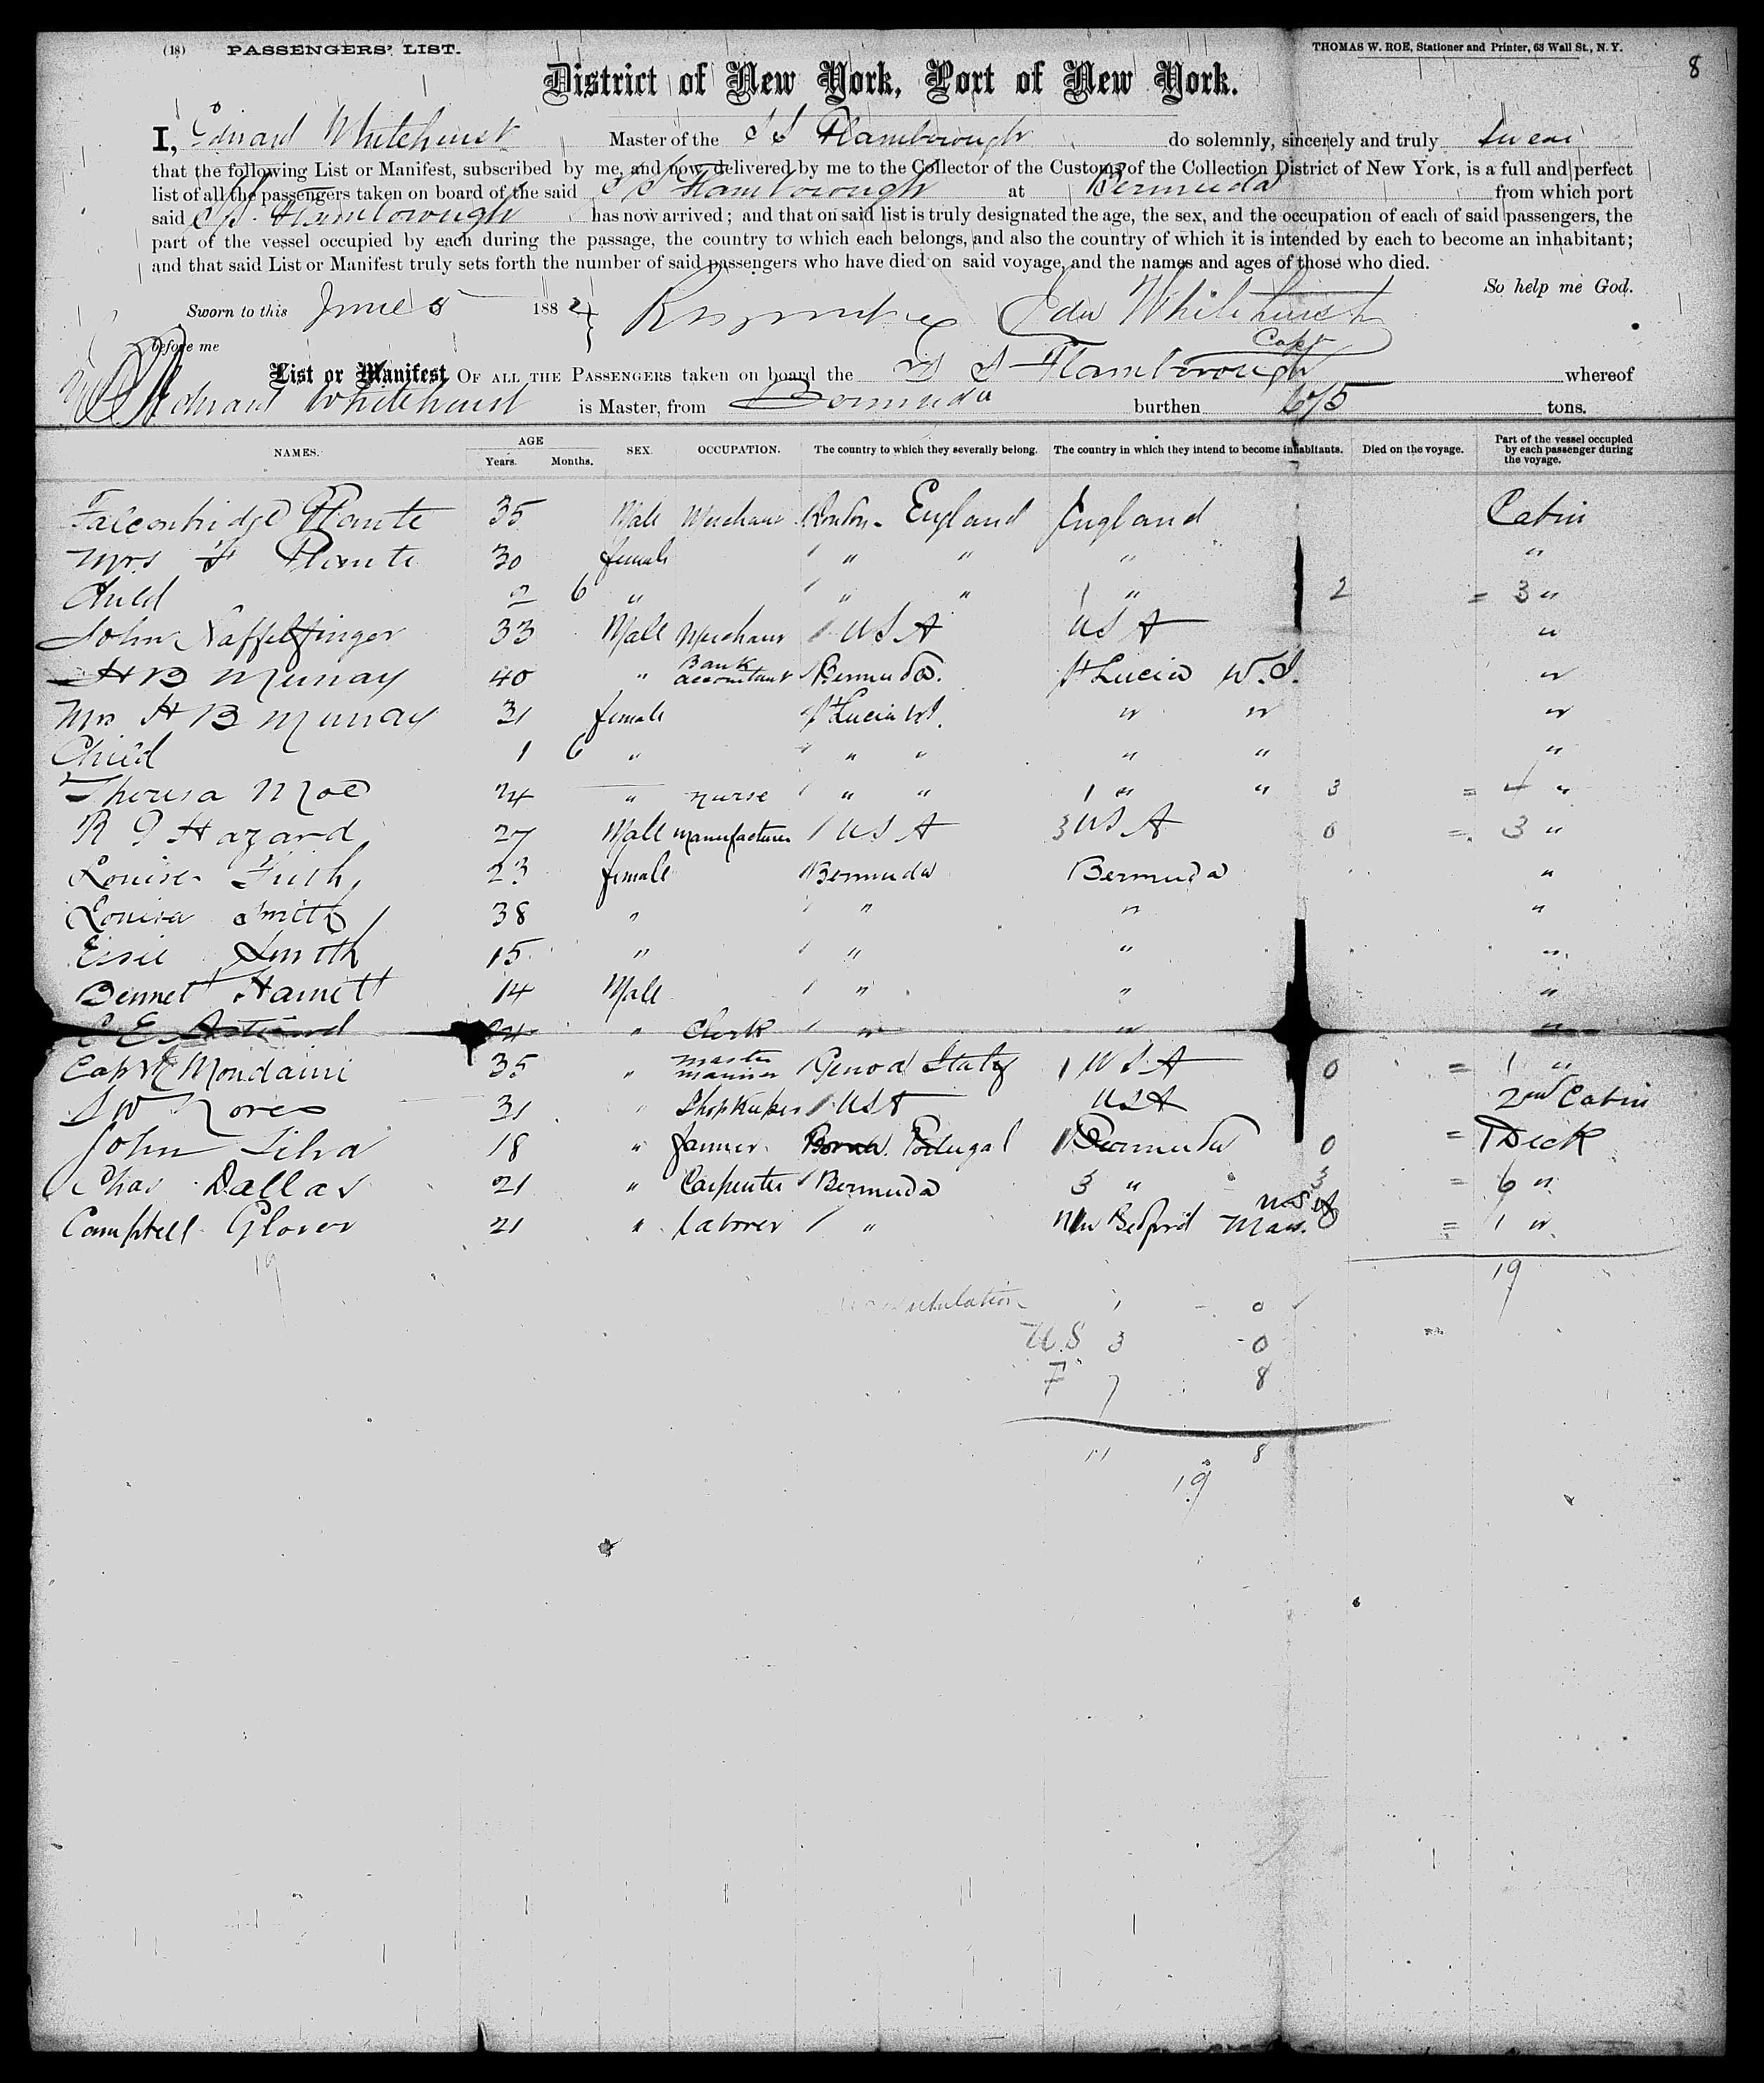 (18) PASSENGERS' LIST.
THOMAS W. ROE, Stationer and Printer, 63 Wall St., N. Y.
8
District of New York, Port of New York.
I, Edward Whitehurst Master of the S S Flamborough do solemnly, sincerely and truly swear
that the following List or Manifest, subscribed by me, and now delivered by me to the Collector of the Customs of the Collection District of New York, is a full and perfect
list of all the passengers taken on board of the said S S Flamborough at Bermuda from which port
said S S. Flamborough has now arrived; and that on said list is truly designated the age, the sex, and the occupation of each of said passengers, the
part of the vessel occupied by each during the passage, the country to which each belongs, and also the country of which it is intended by each to become an inhabitant;
and that said List or Manifest truly sets forth the number of said passengers who have died on said voyage, and the names and ages of those who died.
So help me God.
Sworn to this June 8 1882 Edw Whitehurst
before me Capt
List or Manifest OF ALL THE PASSENGERS taken on board the S S Flamborough whereof
Edward Whitehurst is Master, from Bermuda burthen 675 tons.
NAMES. AGE Years. Months. SEX. OCCUPATION. The country to which they severally belong. The country in which they intend to become inhabitants. Died on the voyage. Part of the vessel occupied by each passenger during the voyage.
Falconbridge 35 Male Merchant London England England Cabin
Mrs F 30 female " " " "
Child 2 6 " " " 1 " 2 = 3 "
John Naffelfinger 33 Male Merchant 1 U S A U S A "
H B Murray 40 " Bank accountant 1 Bermuda. St Lucia W. I. "
Mrs H B Murray 31 female St Lucia W I. " " "
Child 1 6 " " " " " "
Theresa Moe 24 " nurse " " 1 " " 3 = 4 "
R G Hazard 27 Male manufacturer 1 U S A 3 U S A 0 = 3 "
Louise 23 female 1 Bermuda Bermuda "
Louisa Smith 38 " " " "
Essie Smith 15 " " " "
Bennet Harnett 14 Male 1 " " "
C E 24 " Clerk " " "
Capt Mondaini 35 " master mariner 1 Genoa Italy 1 U S A 0 = 1 "
S W 31 " Shopkeeper 1 U S A U S A 2nd Cabin
John Silva 18 " farmer. Portugal 1 Bermuda 0 = 1 Deck
Chas Dallas 21 " Carpenter 1 Bermuda 3 " 3 = 6 "
Campbell Glover 21 " Laborer 1 " New Bedford Mass. U S A = 1 "
19 19
1 - 0
U. S 3 - 0
F 7 8
11 8
19